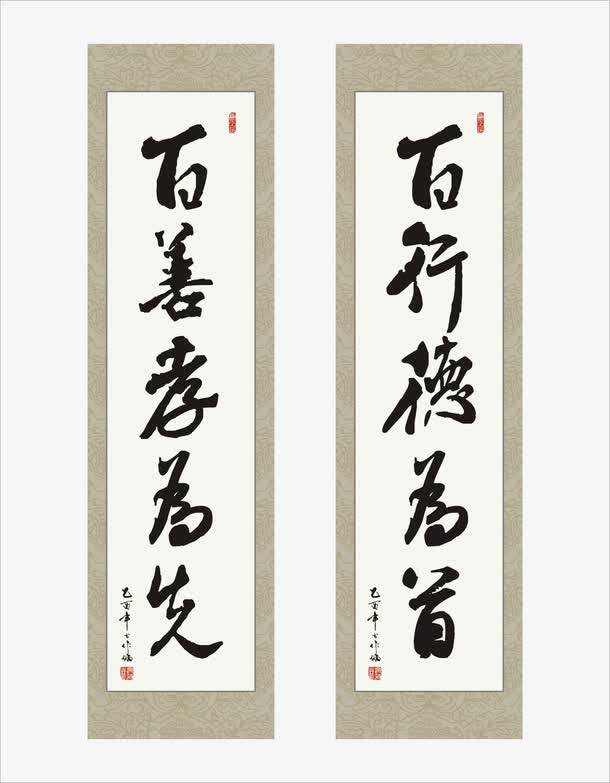 百行德為首
乙酉年
百善孝為先
乙酉年